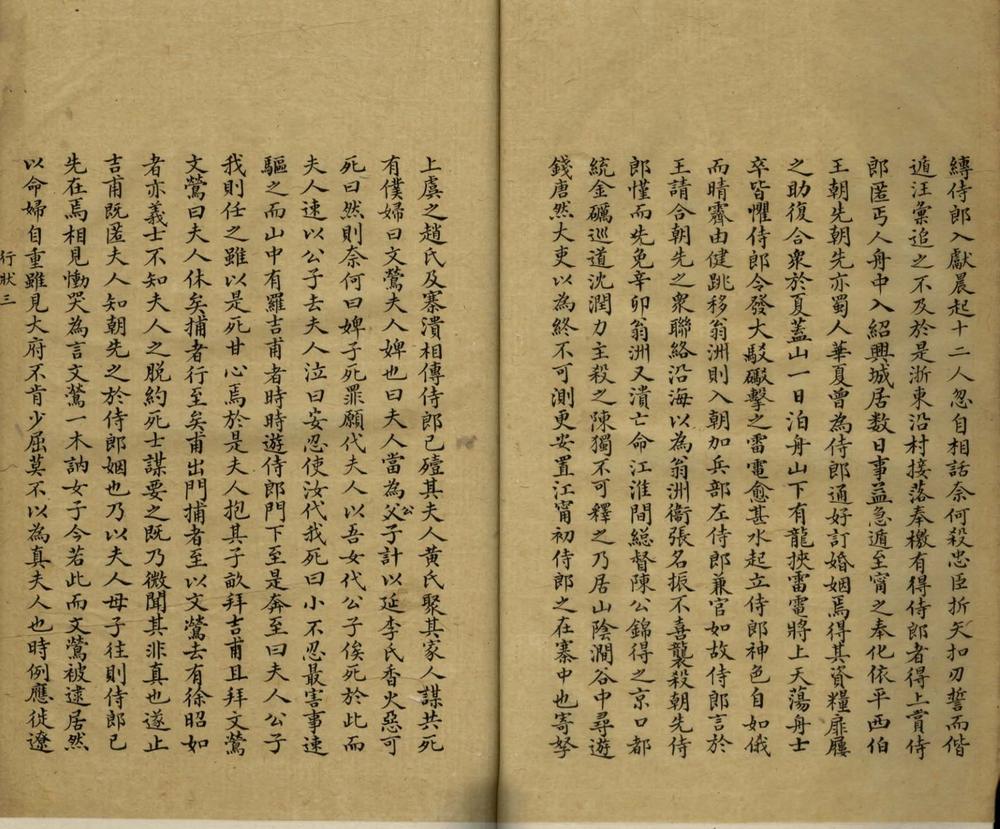 縳侍郎入獻晨起十二人忽自相話奈何殺忠臣折矢扣刃誓而偕
遁汪彙追之不及於是浙東沿村接落奉檄有得侍郎者得上賞侍
郎匿丐人舟中入紹興城居数日事益急遁至甯之奉化依平西伯
王朝先朝先亦蜀人華夏曾為侍郎通好訂婚姻焉得其資糧扉屨
之助復合衆於夏蓋山一日泊舟山下有龍挾雷電將上天蕩舟士
卒皆懼侍郎令發大駮礮擊之雷電愈甚水起立侍郎神色自如俄
而晴霽由健跳移翁洲則入朝加兵部左侍郎兼官如故侍郎言於
王請合朝先之衆聯絡沿海以為翁洲衞張名振不喜襲殺朝先侍
郎慬而先免辛卯翁洲又潰亡命江淮間総督陳公錦得之京口都
統金礪巡道沈潤力主殺之陳獨不可釋之乃居山陰澗谷中尋遊
錢唐然大吏以為終不可測更安置江甯初侍郎之在寨中也寄孥
上虞之趙氏及寨潰相傳侍郎已殪其夫人黄氏聚其家人謀共死
有僕婦曰文鶯夫人婢也曰夫人當為公父子計以延李氏香火惡可
死曰然則奈何曰婢子死罪願代夫人以吾女代公子俟死於此而
夫人速以公子去夫人泣曰安忍使汝代我死曰小不忍最害事速
驅之而山中有羅吉甫者時時遊侍郎門下至是奔至曰夫人公子
我則任之雖以是死甘心焉於是夫人抱其子畝拜吉甫且拜文鶯
文鶯曰夫人休矣捕者行至矣甫出門捕者至以文鶯去有徐昭如
者亦義士不知夫人之脫約死士謀要之既乃微聞其非真也遂止
吉甫既匿夫人知朝先之於侍郎姻也乃以夫人母子往則侍郎已
先在焉相見慟哭為言文鶯一木訥女子今若此而文鶯被逮居然
以命婦自重雖見大府不肯少屈莫不以為真夫人也時例應徙遼
行狀三